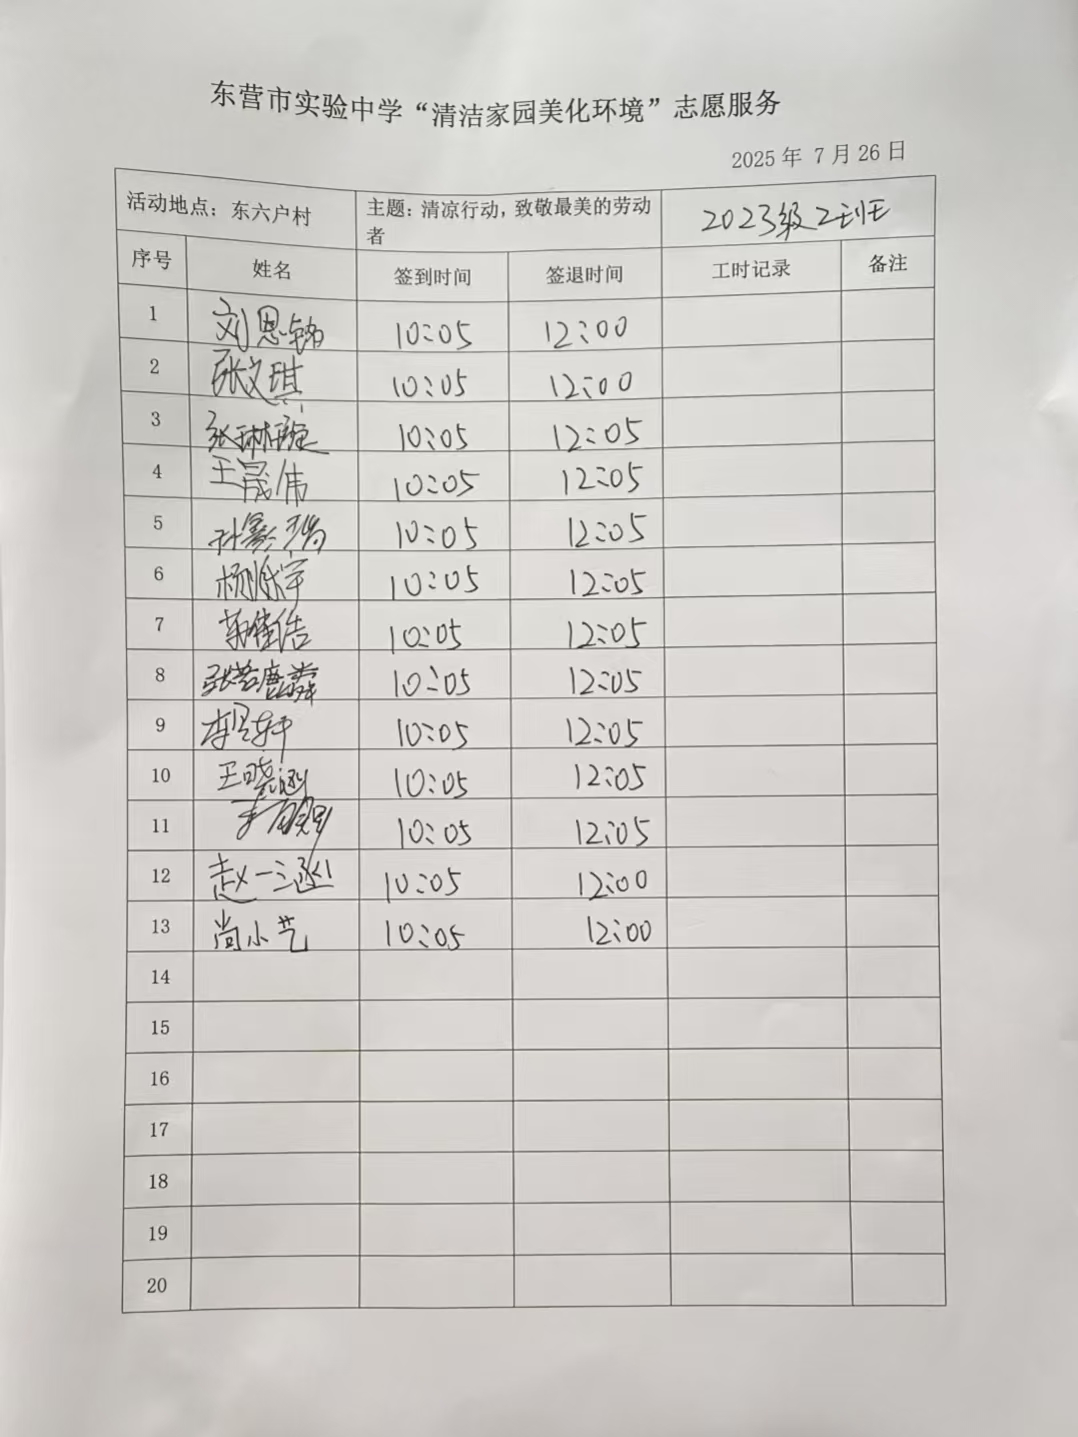 东营市实验中学“清洁家园美化环境”志愿服务
2025 年 7 月 26 日
活动地点：东六户村 主题：清凉行动，致敬最美的劳动者 2023级2班
序号 姓名 签到时间 签退时间 工时记录 备注
1 刘恩铭 10:05 12:00
2 张文琪 10:05 12:00
3 张琳璇 10:05 12:05
4 王晟伟 10:05 12:05
5 10:05 12:05
6 10:05 12:05
7 10:05 12:05
8 张若鹿 10:05 12:05
9 10:05 12:05
10 王晓涵 10:05 12:05
11 10:05 12:05
12 赵一 10:05 12:00
13 尚小艺 10:05 12:00
14
15
16
17
18
19
20